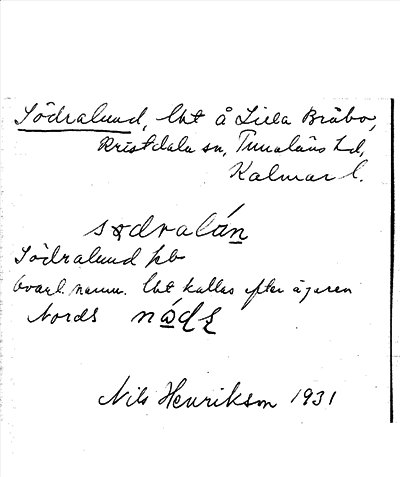 Södralund, lht å Lilla Bråbo,
Kristdala sn, Tunaläns hd,
Kalmar l.
sødralán
Södralund jb
ovanl. namn. Lht kallas efter ägaren
Nords nåds
Nils Henrikson 1931